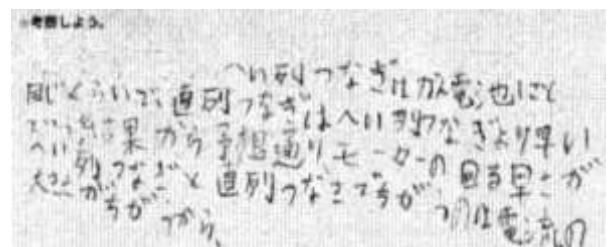 考察しよう。
へい列つなぎはかん電池1こと
同じくらいで、直列つなぎはへい列つなぎより早い
結果から予想通りモーターの回る早さが
へい列つなぎと直列つなぎでちがうのは電流の
大きさがちがうから、